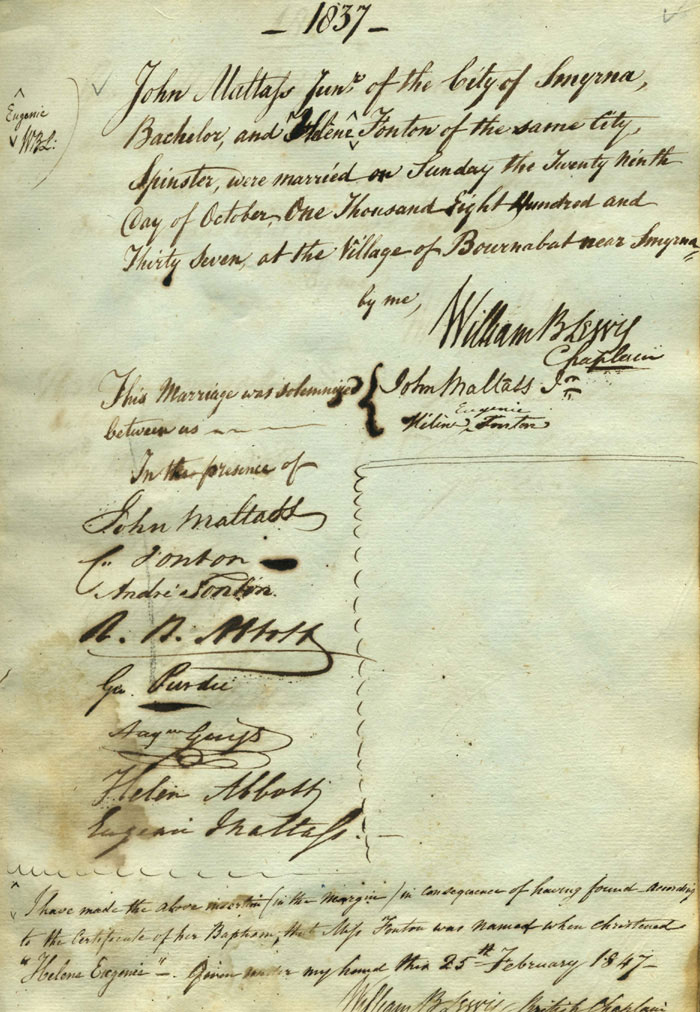 - 1837 -
Eugenie
WBL:
John Maltass Junr. of the City of Smyrna,
Bachelor, and Hélène Fonton of the same City,
Spinster, were married on Sunday the Twenty Ninth
Day of October, One Thousand Eight Hundred and
Thirty Seven, at the Village of Bournabat near Smyrna
by me,
William B Lewis
Chaplain
This Marriage was solemnized
between us
John Maltass Jnr
Eugenie
Hélène Fonton
In the presence of
John Maltass
C. Fonton
André Fonton.
R. W. Abbott
Geo. Purdie
Guys
Helen Abbott
Eugenie Maltass.
I have made the above insertion (in the margin) in consequence of having found according
to the Certificate of her Baptism, that Miss Fonton was named when christened
"Helene Eugenie" -. Given under my hand this 25th February 1847-
William B Lewis British Chaplain